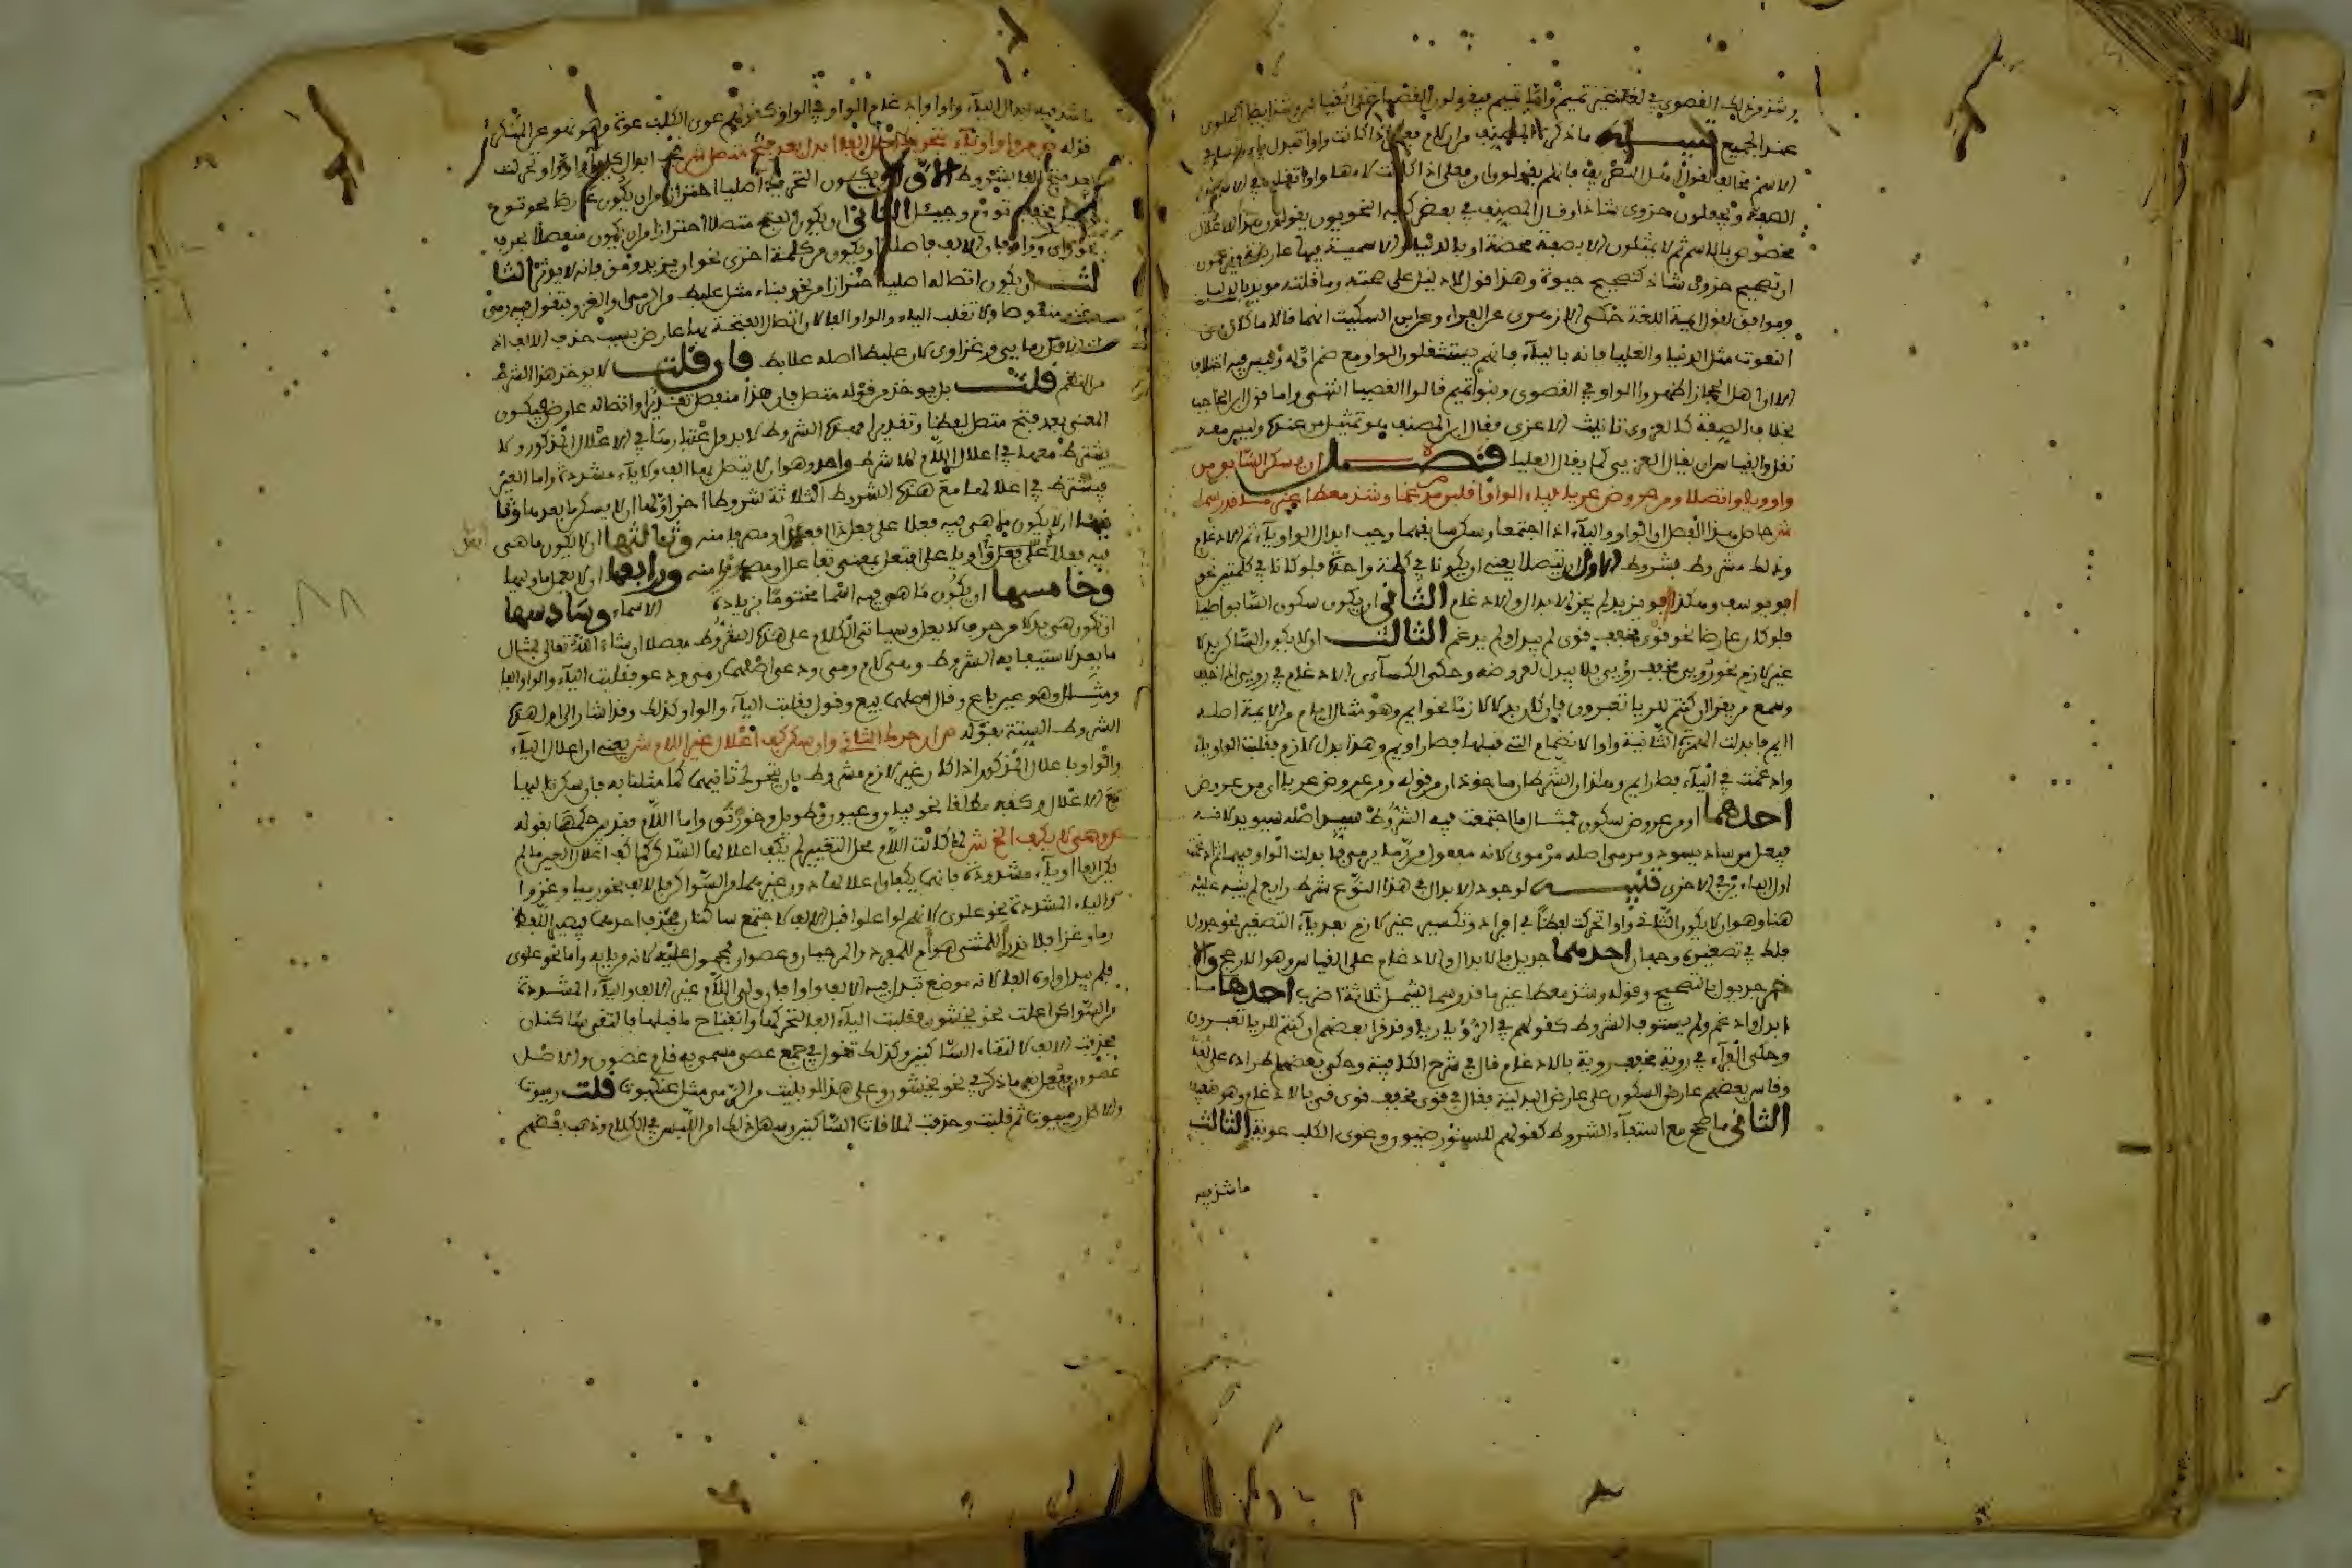 وشذ من ذلك القصوى في لغة غير تميم وأما تميم فيقولون القصيا على القياس وشذ أيضا الحلوى
عند الجميع تنبيه ما ذكره المصنف من أن لام فعلى إذا كانت واوا تبدل ياء
الاسم مخالف لقول أهل التصريف فإنهم يقولون إن فعلى إذا كانت لامها واوا تقلب في الاسم دون
الصفة ويجعلون حزوى شاذا وقال المصنف في بعض كتبه النحويون يقولون هذا الاعلال
مخصوص بالاسم ثم لا يمثلون الا بصفة محضة او بالدنيا والاسمية فيها عارضة ويزعمون
ان تصحيح حزوى شاذ كتصحيح حيوة وهذا قول لا دليل على صحته وما قلته مويد بالدليل
وموافق لقول ايمة اللغة حكى الازهري عن الفراء وعن ابن السكيت انهما قالا ما كان من
النعوت مثل الدنيا والعليا فانه بالياء فانهم يستثقلون الواو مع ضم اوله وليس فيه اختلاف
الا ان اهل الحجاز اظهروا الواو في القصوى وبنوا تميم قالوا القصيا انتهى واما قول ابن الحاجب
بخلاف الصفة كالغزوى تانيث الاغزى فقال ابن المصنف هو تمثيل من عنده وليس معه
نقل والقياس ان يقال الغزيى كما يقال العليا فصل ان يسكن السابق من
واو ويا واتصلا ومن عروض عريا فياء الواو اقلبن مدغما وشذ معطى غير ما قد رسما
ش حاصل هذا الفصل ان الواو والياء اذا اجتمعا وسكن سابقهما وجب ابدال الواو ياء ثم الادغام
وذلك مشروط بشروط الاول ان يتصلا يعني ان يكونا في كلمة واحدة فلو كانا في كلمتين نحو
ابو يوسف وهكذا ابو يزيد لم يجز الابدال والادغام الثاني ان يكون سكون السابق اصليا
فلو كان عارضا نحو قوى مخفف قوى لم يبدل ولم يدغم الثالث ان لا يكون الساكن بدلا
غير لازم نحو رويى مخفف رؤيى فلا يبدل لعروضه وحكى الكسائي الادغام في رويى اذا خفف
وسمع من يقرا ان كنتم للريا تعبرون فان كان بدلا لازما نحو ايم وهو مثال ابلم من الايمة اصله
اايم فابدلت الهمزة الثانية واوا لانضمام التي قبلها فصار اويم وهذا بدل لازم فقلبت الواو ياء
وادغمت في الياء فصار ايم وهذان الشرطان ماخوذان من قوله ومن عروض عريا اي من عروض
احدهما او من عروض سكون فمثال ما اجتمعت فيه الشروط سيد اصله سيود لانه
فيعل من ساد يسود ومرمى اصله مرموى لانه مفعول من رمى يرمي فابدلت الواو فيهما وادغمت
احدى الياءين في الاخرى تنبيه لوجود الابدال في هذا النوع شرط رابع لم ينبه عليه
هنا وهو ان لا يكون الثاني واوا تحركت لفظا في افراد وتكسير غير لازم بعد ياء التصغير نحو جدول
فلك في تصغيره وجهان احدهما جديل بالابدال والادغام على القياس وهو الارجح والا
خر جديول بالتصحيح وقوله وشذ معطى غير ما قد رسما يشمل ثلاثة اضرب احدها ما
ابدل وادغم ولم يستوف الشروط كقولهم في الرؤيا ريا وقد قرا بعضهم ان كنتم للريا تعبرون
وحكى الفراء في روية مخفف رؤية بالادغام قال في شرح الكافية وحكى بعضهم اطراده على لغة
وقاس بعضهم عارض السكون على عارض البدلية فقال في قوى مخفف قوى قي بالادغام وهو ضعيف
الثاني ما صح مع استيفاء الشروط كقولهم للسنور ضيون وعوى الكلب عوية الثالث
ما شذ فيه
ما شذ فيه ابدال الياء واوا وادغام الواو في الواو كقولهم عوى الكلب عوة وهو نهو عن المنكر
قوله ص من واو او ياء بتحريك اصل الفا ابدل بعد فتح متصل ش يجب ابدال كل ياء او واو تحركت
بعد فتح الفا بشروط الاول ان يكون التحريك اصليا احترازا من ان يكون عارضا نحو توم
وجيل مخفف توءم وجيئل الثاني ان يكون الفتح متصلا احترازا من ان يكون منفصلا بحرف
نحو واي وزاي فان الالف فاصلة او يكون من كلمة اخرى نحو ان يزيد ومق فانه لا يوثر الثا
لث ان يكون اتصاله اصليا احترازا من نحو بناء مثل علبط من الرمي والغزو فتقول فيه رمي
وغزو منقوصا ولا تقلب الياء والواو الفا لان اتصال الفتحة بهما عارض بسبب حذف الالف اذ
الاصل رمايي وغزاوي لان علبطا اصله علابط فان قلت لا يوخذ هذا الشرط
من النظم قلت بل يوخذ من قوله متصل فان هذا منفصل تقديرا واتصاله عارض فيكون
المعنى بعد فتح متصل لفظا وتقديرا فهذه الشروط لا بد من اعتبارها في الاعلال المذكور ولا
يشترط معها في اعلال اللام الا شرط واحد وهو ان لا يتصل بها الف ولا ياء مشددة واما العين
فيشترط في اعلالها مع هذه الشروط الثلاثة شروط اخر اولها ان لا يسكن ما بعدها وثا
نيها ان لا يكون ما هي فيه فعلا على فعل ذا افعل او مصدرا منه وثالثها ان لا يكون ما هي
فيه فعلا على فعل واويا على افتعل بمعنى تفاعل او مصدرا منه ورابعها ان لا يعل ما وليها
وخامسها ان يكون ما هي فيه اسما مختوما بزيادة الاسماء وسادسها
ان تكون هي بدلا من حرف لا يعل وسياتي الكلام على هذه الشروط مفصلا ان شاء الله تعالى فمثال
ما يعل لاستيفائه الشروط وهي لام رمى ودعى اصلهما رمي ودعو فقلبت الياء والواو الفا
ومثاله وهو عين باع وقال اصلهما بيع وقول فقلبت الياء والواو كذلك وقد اشار الى اول هذه
الشروط الستة بقوله ص ان حرك الثاني وان سكن كف اعلال غير اللام ش يعني ان اعلال الياء
والواو باعلال المذكور اذا كان غير لام مشروط بان يتحرك ثانيهما كما مثلنا به فان سكن تاليهما
منع الاعلال وكفه مطلقا نحو بيان وغيور وطويل وخورنق واما اللام فقد بين حكمها بقوله
ص وهي لا يكف الخ ش لما كانت اللام محل التغيير لم يكف اعلالها الساكن كما كف اعلال العين ما لم
يكن الفا او ياء مشددة فانهما يكفان اعلالها دون غيرهما من السواكن فالالف نحو رميا وغزوا
والياء المشددة نحو علوى لانهم لو اعلوا قبل الالف لاجتمع ساكنان فحذف احدهما فيصير اللفظ
رما وغزا فلا يدرى المثنى هو ام المفرد والرحيان وعصوان محمول عليه لانه من بابه واما نحو علوى
فلم يبدل واوه الفا لانه موضع تبدل فيه الالف واوا فان ولي اللام غير الالف والياء المشددة
من السواكن اعلت نحو يخشون فقلبت الياء الفا لتحركها وانفتاح ما قبلها فالتقى ساكنان
فحذفت الالف لالتقاء الساكنين وكذلك تقول في جمع عصى مسمى به قام عصون والاصل
عصوون ففعل به ما ذكر في نحو يخشون وعلى هذا لو بنيت من الرمي مثل عنكبوت قلت رميوت
والاصل رميوت ثم قلبت وحذفت لملاقاة الساكنين وسهل ذلك امن اللبس في الكلام وذهب بعضهم